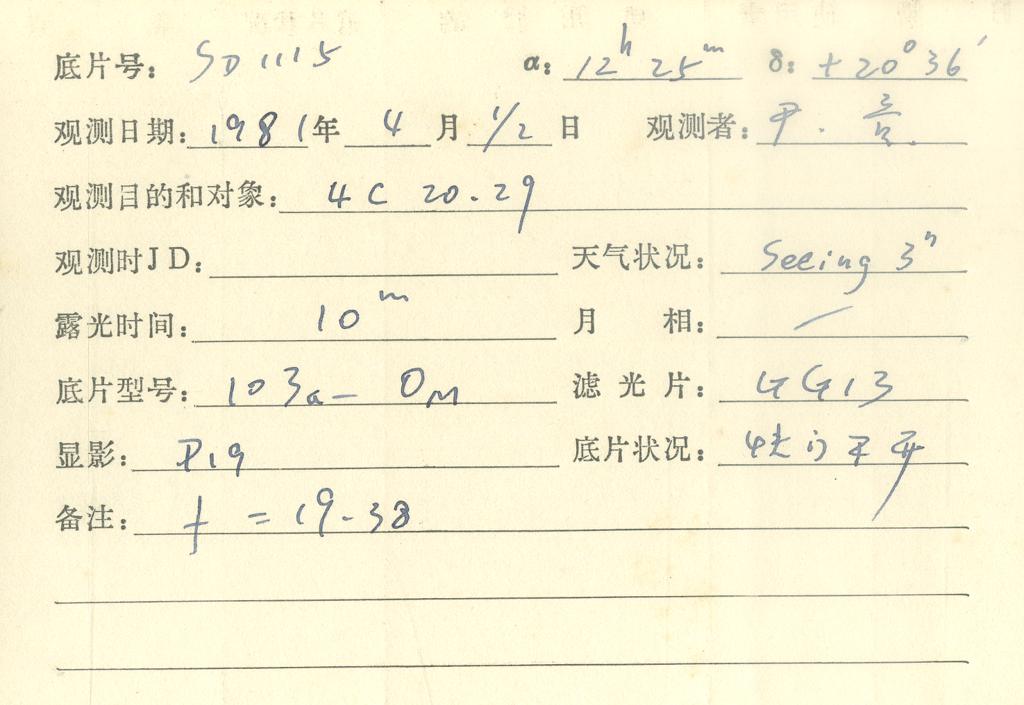 底片号: SD1115 α: 12ʰ 25ᵐ δ: +20°36′
观测日期: 1981年 4 月 1/2 日 观测者: 尹.
观测目的和对象: 4C 20.29
观测时JD: 天气状况: Seeing 3"
露光时间: 10ᵐ 月 相: /
底片型号: 103a-O 滤光片: GG13
显影: D19 底片状况: 快门不开
备注: f = 19.38